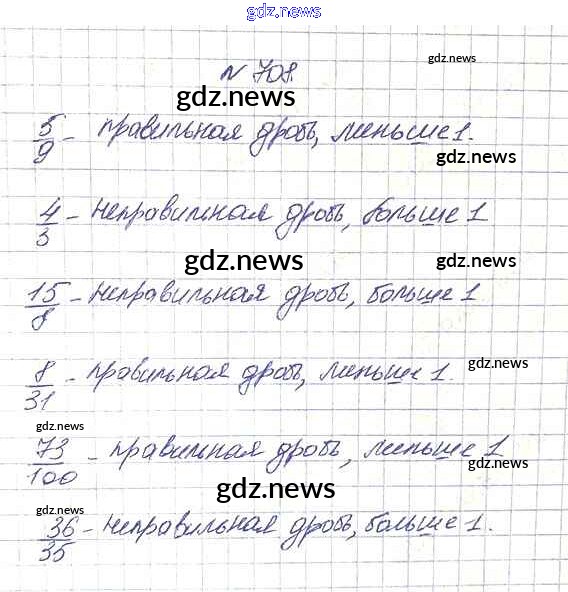 gdz.news
№ 708.
gdz.news
gdz.news
5/9 - правильная дробь, меньше 1.
gdz.news
4/3 - неправильная дробь, больше 1
gdz.news
gdz.news
15/8 - неправильная дробь, больше 1
gdz.news
8/31 - правильная дробь, меньше 1.
gdz.news
73/100 - правильная дробь, меньше 1
gdz.news
gdz.news
gdz.news
36/35 - неправильная дробь, больше 1.